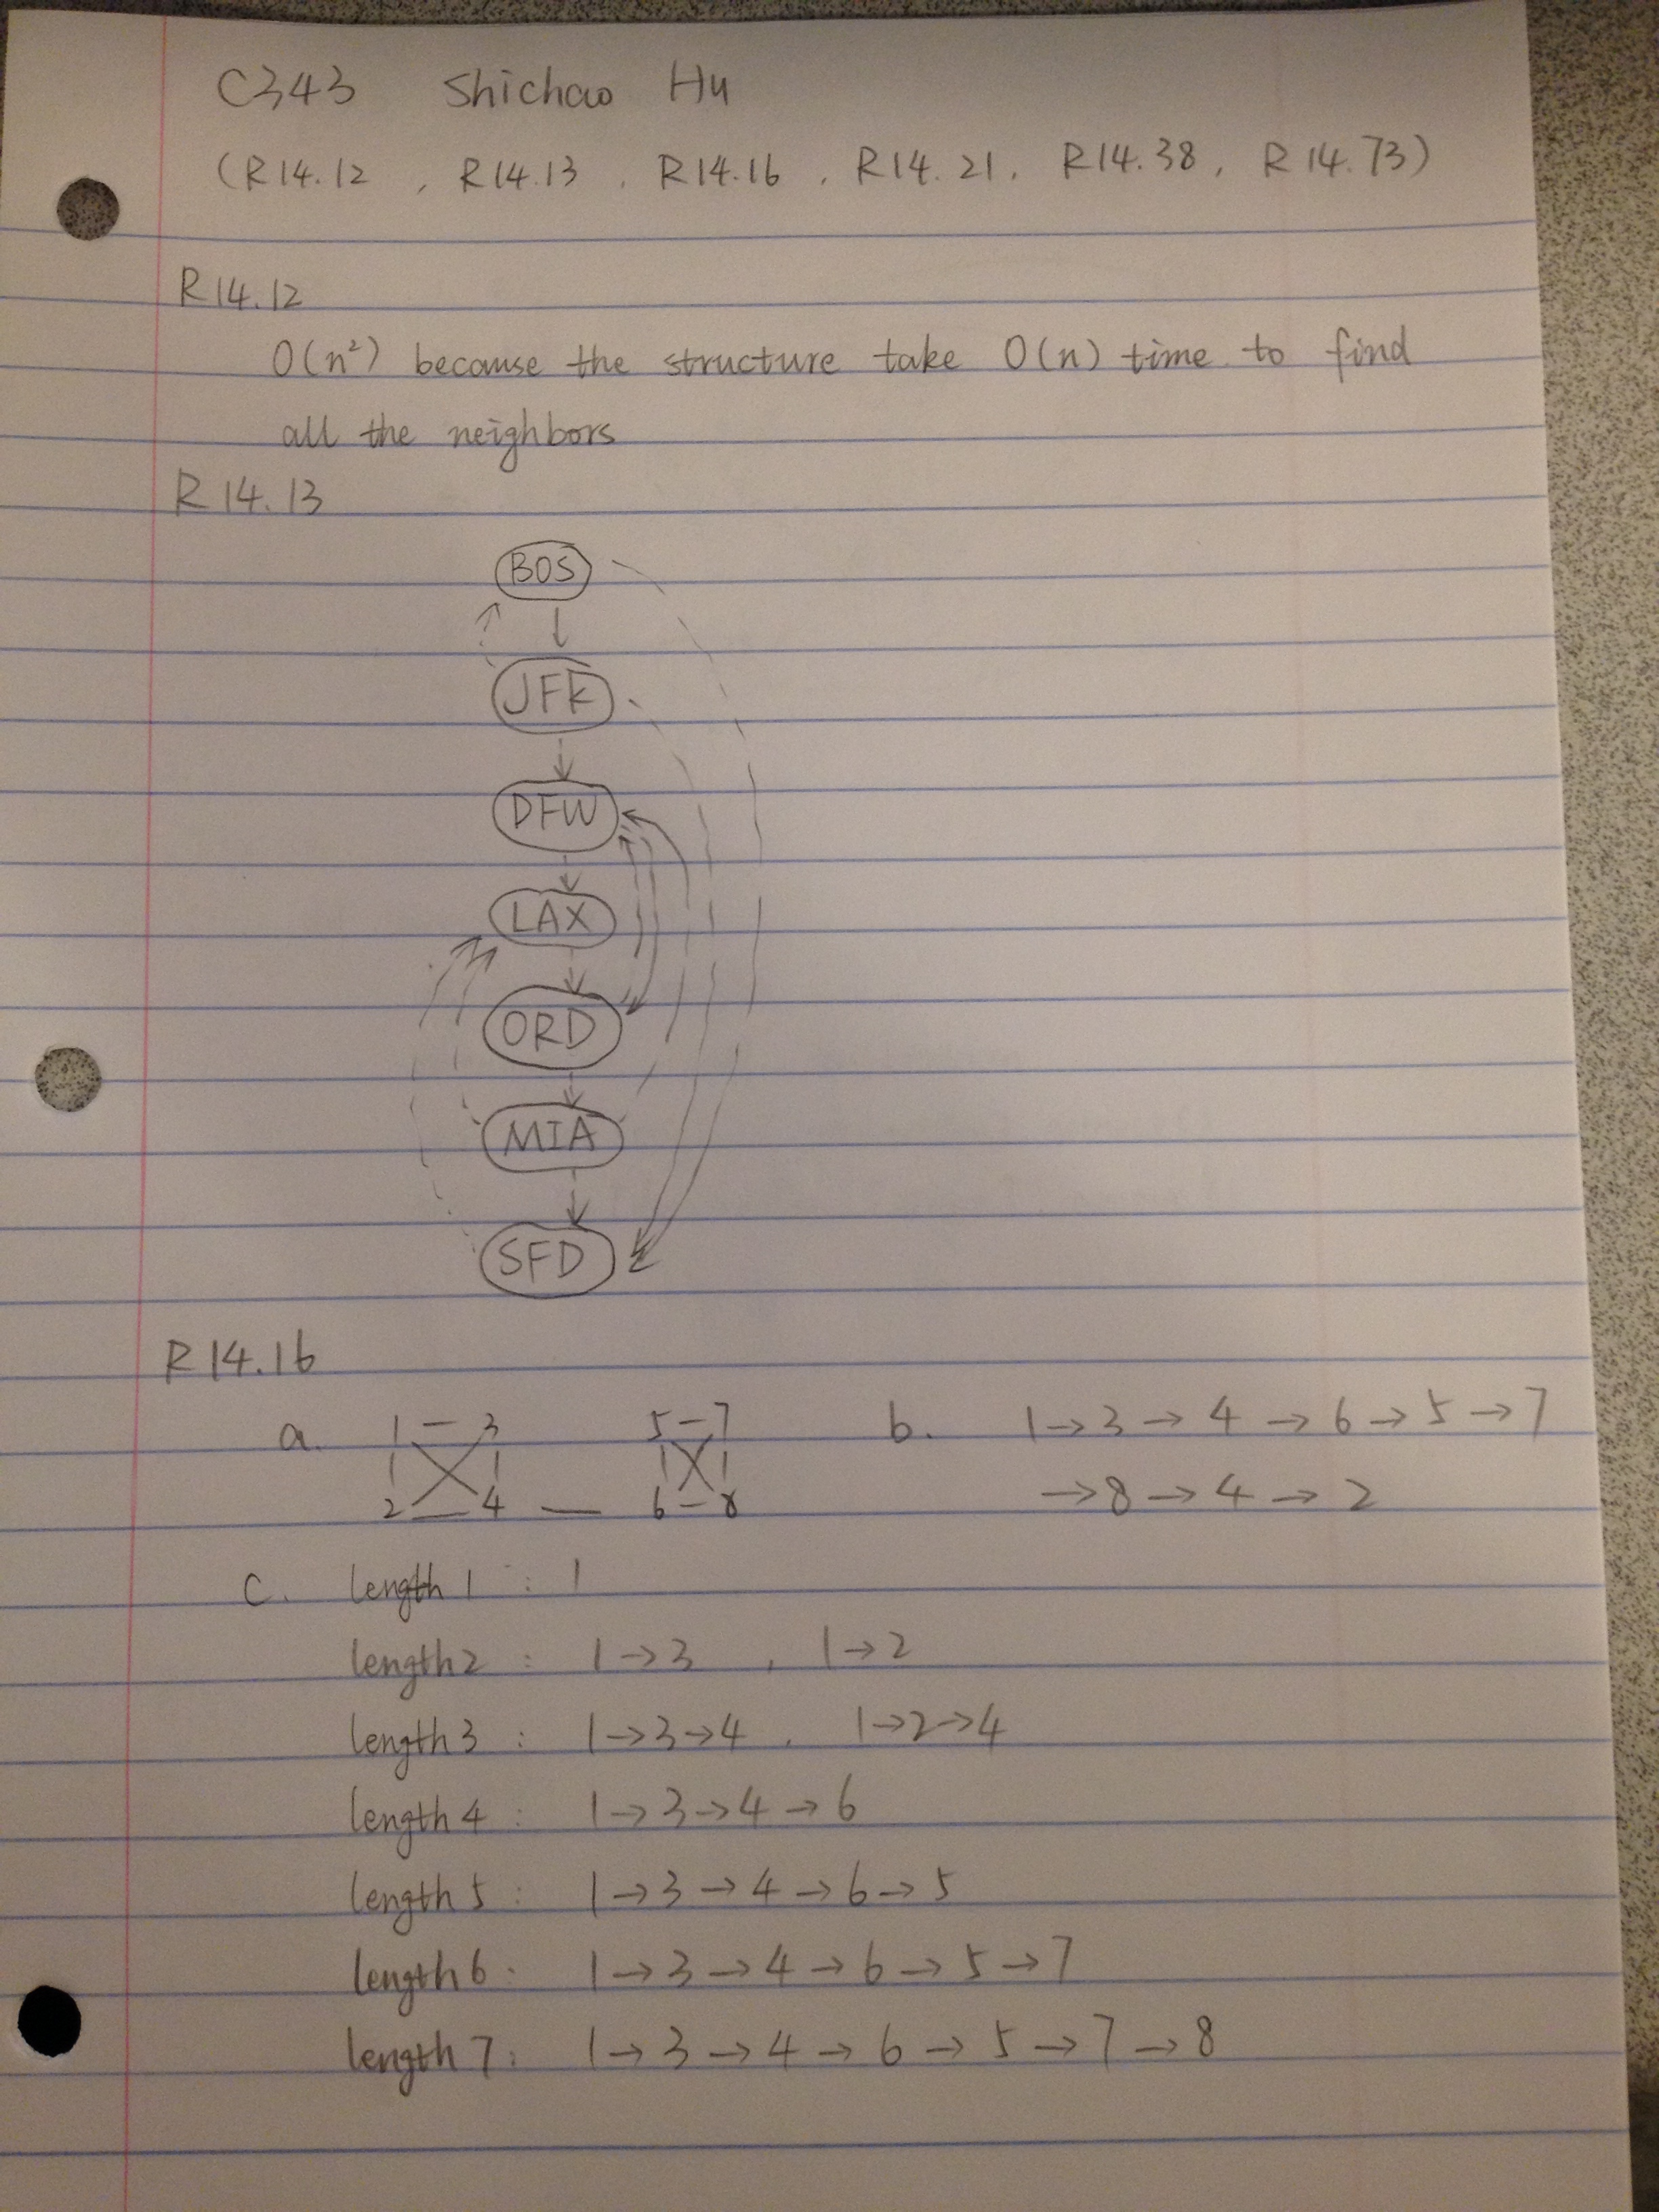 C343 Shichao Hu
(R14.12 , R14.13 , R14.16 , R14.21 , R14.38 , R14.73)
R14.12
O(n²) because the structure take O(n) time to find
all the neighbors
R14.13
BOS
JFK
DFW
LAX
ORD
MIA
SFD
R14.16
a. 1 — 3 5 — 7 b. 1→3→4→6→5→7
2 — 4 — 6 — 8 →8→4→2
c. length 1 : 1
length 2 : 1→3 , 1→2
length 3 : 1→3→4 , 1→2→4
length 4 : 1→3→4→6
length 5 : 1→3→4→6→5
length 6 : 1→3→4→6→5→7
length 7 : 1→3→4→6→5→7→8